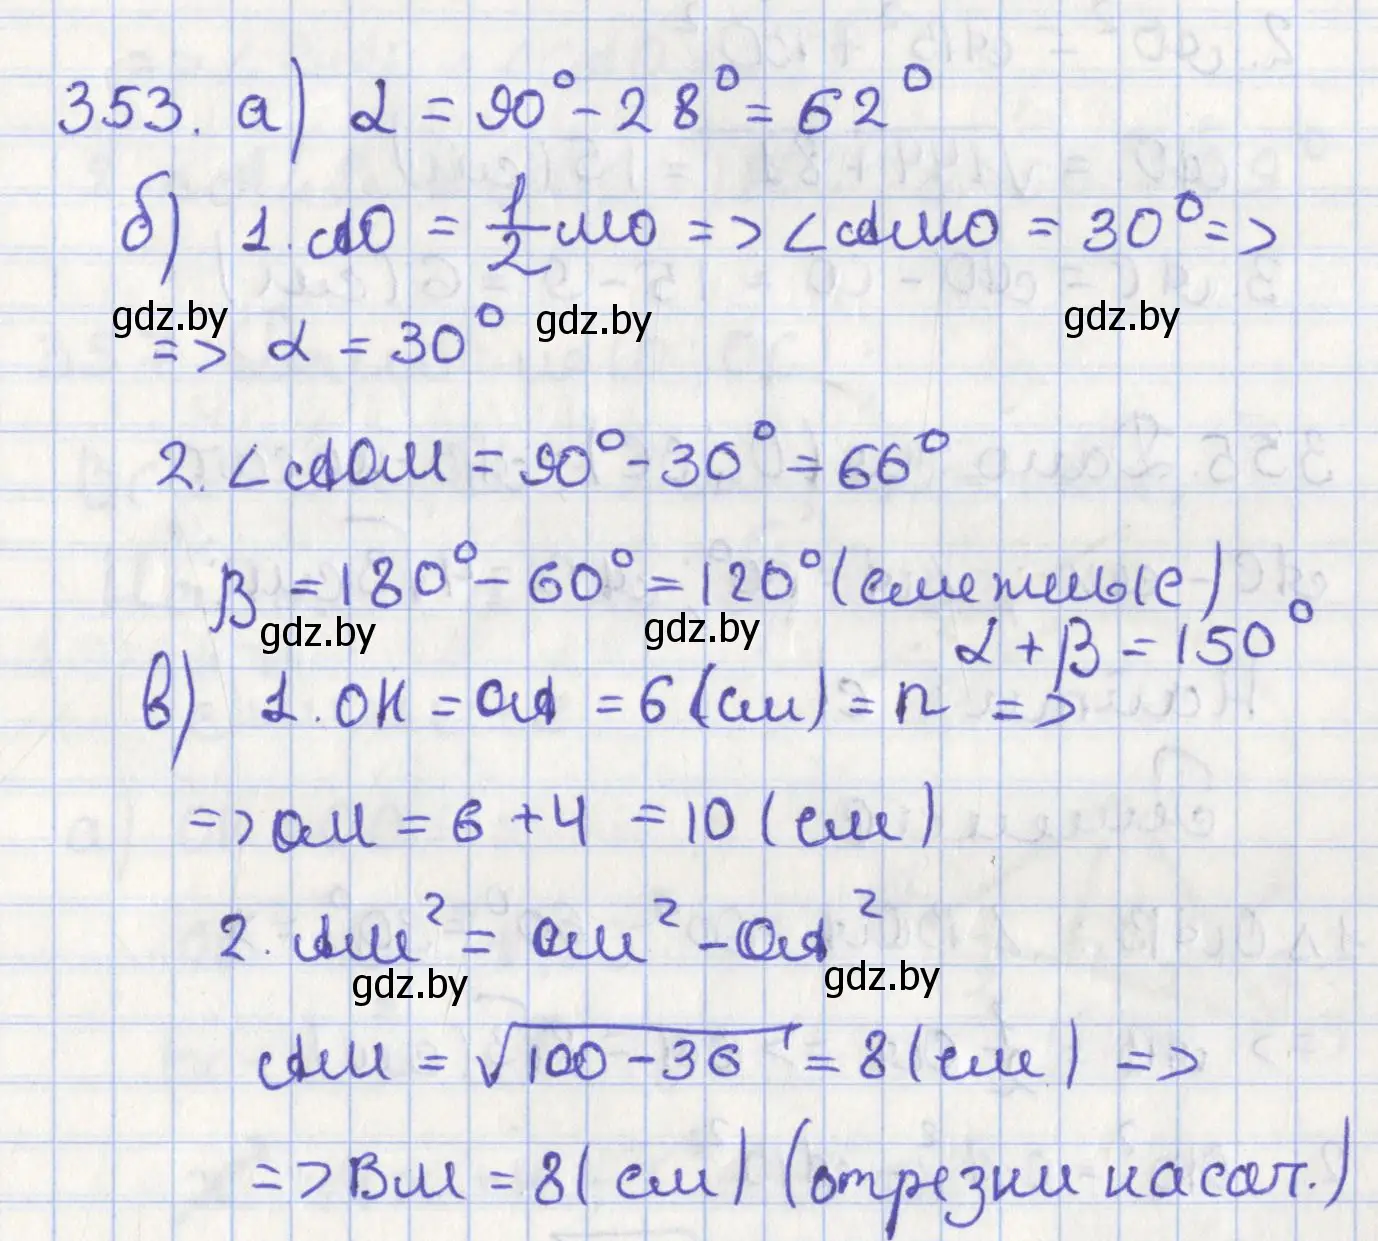 353. а) α = 90° - 28° = 62°
б) 1. АО = 1/2 МО => ∠АМО = 30° =>
gdz.by gdz.by gdz.by
=> α = 30°
2. ∠АОМ = 90° - 30° = 60°
β = 180° - 60° = 120° (смежные)
gdz.by gdz.by
α + β = 150°
в) 1. ОК = ОА = 6 (см) = r =>
=> ОМ = 6 + 4 = 10 (см)
2. АМ² = ОМ² - ОА²
gdz.by gdz.by
АМ = √100 - 36 = 8 (см) =>
=> ВМ = 8 (см) (отрезки касат.)